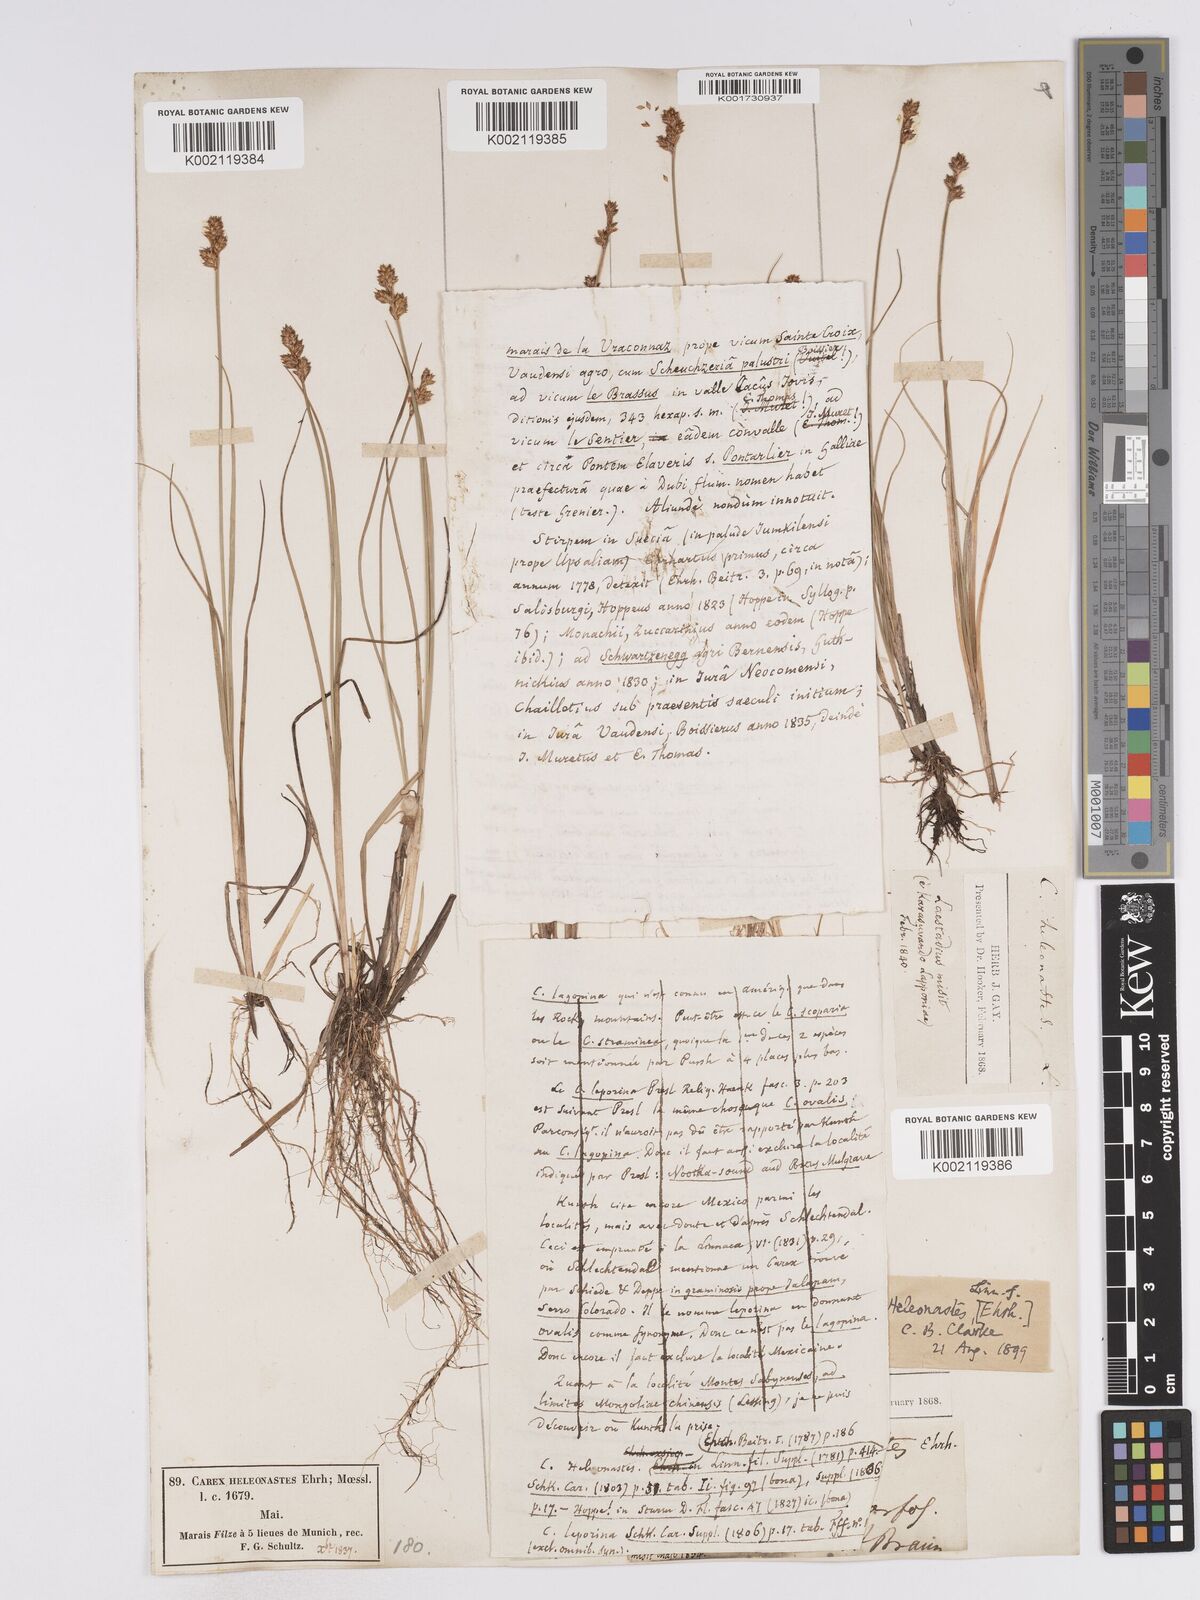 ROYAL BOTANIC GARDENS KEW
K002119384
ROYAL BOTANIC GARDENS KEW
K002119385
ROYAL BOTANIC GARDENS KEW
K001730937
marais de la Vraconnaz prope vicum Sainte Croix,
Vaudensi agro, cum Scheuchzeriâ palustri (Boissier!),
ad vicum le Brassus in valle Lacûs Jovis,
ditionis ejusdem, 343 hexap. s. m. (E. Thomas J. Muret!), ad
vicum le Sentier, in eâdem convalle (J. Muret! E. Thom.!)
et circâ Pontem Elaveris s. Pontarlier in Galliae
praefecturâ quae à Dubi flum. nomen habet
(teste Grenier.). Aliundè nondùm innotuit.
Stirpem in Sueciâ (in palude Jumkilensi
prope Upsaliam) Ehrhartus primus, circa
annum 1778, detexit (Ehrh. Beitr. 3. p. 69, in notâ);
Salisburgi, Hoppeus anno 1823 (Hoppe in Syllog. p.
76); Monachii, Zuccarinius anno eodem (Hoppe
ibid.); ad Schwartzenegg agri Bernensis, Guth-
nickius anno 1830; in Jurâ Neocomensi,
Chaillotius sub praesentis saeculi initium;
in Jurâ Vaudensi, Boissierus anno 1835, deindè
J. Muretus et E. Thomas.
C. lagopina qui n'est connu en amériq. que dans
les Rocky mountains. Peut-être est-ce le C. scoparia
ou le C. straminea, quoique la 1re de ces 2 espèces
soit mentionnée par Pursh à 4 places plus bas.
Le C. leporina Presl Reliq. Haenk fasc. 3. p. 203
est suivant Presl la même chose que C. ovalis;
Par conséqt. il n'auroit pas dû être rapporté par Kunth
au C. lagopina. Donc il faut aussi exclure la localité
indiquée par Presl: Nootka-sound and Portus Mulgrave
Kunth cite encore Mexico parmi les
localités, mais avec doute et d'après Schlechtendal.
Ceci est emprunté à la Linnaea, VI. (1831) p. 29,
où Schlechtendal mentionne un Carex trouvé
par Schiede & Deppe in graminosis prope Jalapam,
Serro Colorado. Il le nomme leporina en donnant
ovalis comme synonyme. Donc ce n'est pas le lagopina.
Donc encore il faut exclure la localité Mexicaine.
Quant à la localité Montes Sabynenses, ad
limites Mongoliae chinensis (Lessing), je ne puis
découvrir où Kunth l'a prise.
Ehrh. Beitr. I. (1787) p. 186
C. Heleonastes. Ehrh. in Linn. fil. Suppl. (1781) p. 414.
Schk. Car. (1803) p. 51 tab. Ii. fig. 97 (bona), Suppl. (1806)
p. 17. — Hoppe! in Sturm D. Fl. fasc. 47 (1827) ic. (bona)
C. leporina Schk. Car. Suppl. (1806) p. 17. tab. Fff. n. 1
(excl. omnib. syn.).
misit maio 1834.
Laestadius misit
(è Karasuvando Lapponiae)
Febr. 1840.
HERB. J. GAY.
Presented by Dr. Hooker, February 1868.
C. heleonastes L.
ROYAL BOTANIC GARDENS KEW
K002119386
Linn. f.
Heleonastes [Ehrh.]
C. B. Clarke
21 Aug. 1899
ruary 1868.
tes Ehrh.
Braun
89. CAREX HELEONASTES Ehrh; Mœssl.
l. c. 1679.
Mai.
Marais Filze à 5 lieues de Munich, rec.
F. G. Schultz. Xbr 1837.
180.
inches
centimeters
Don Williams
M001007
Kew
Royal Botanic Gardens
0 1 2 3 4 5 6 7 8 9 10
cm